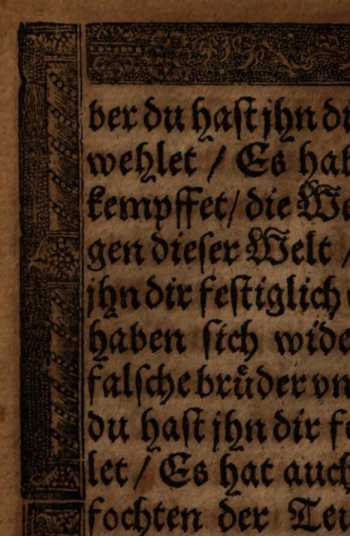 ber du haſt jhn di
wehlet / Es hat
kempffet / die We
gen dieſer Welt /
jhn dir feſtiglich
haben ſich wide
falſche bruͤder vn
du haſt jhn dir fe
let / Es hat auch
fochten der Teu